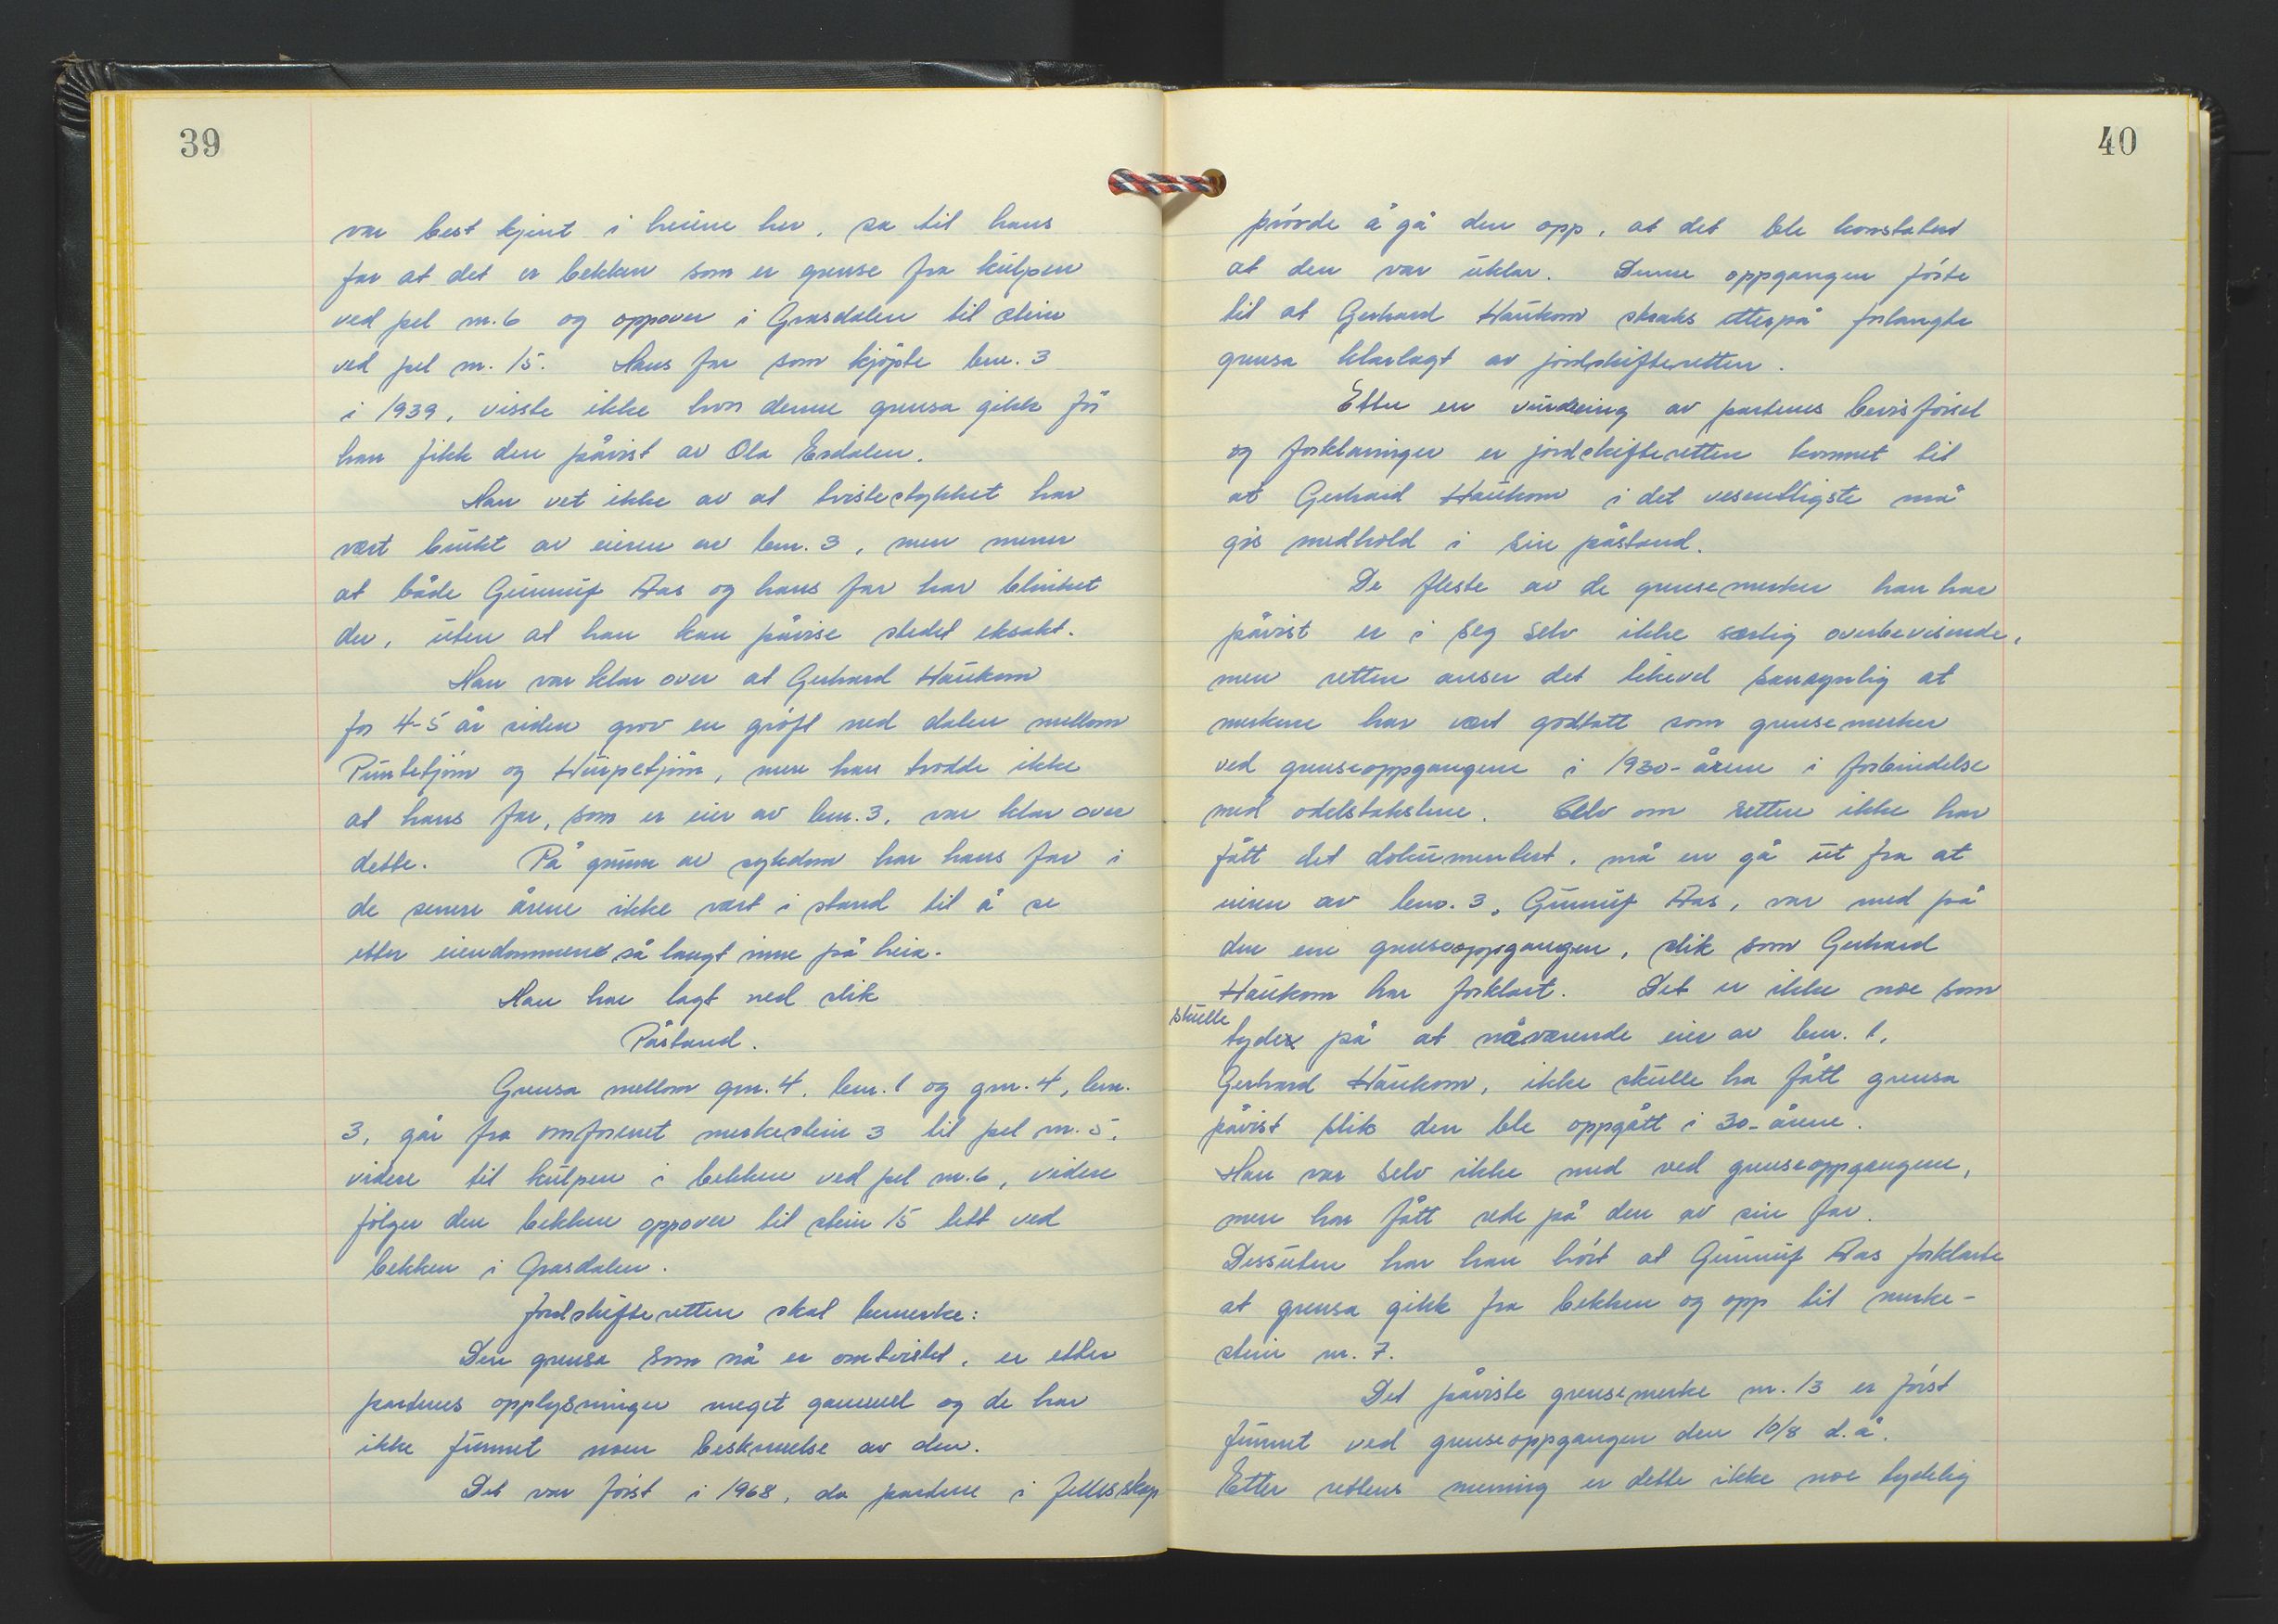 39
var best kjent i heiene her, sa til hans
far at det er bekken som er grense fra kulpen
ved pel nr. 6 og oppover i Grasdalen til stein
ved pel nr. 15. Hans far som kjøpte bnr. 3
i 1939, visste ikke hvor denne grensa gikk før
han fikk den påvist av Ola Esdalen.
Han vet ikke av at tvistestykket har
vært brukt av eieren av bnr. 3, men mener
at både Gunnuf Aas og hans far har blinket
der, uten at han kan påvise stedet eksakt.
Han var klar over at Gerhard Haukom
for 4-5 år siden grov en grøft ned dalen mellom
Puntetjønn og Hurpetjønn, men han trodde ikke
at hans far, som er eier av bnr. 3, var klar over
dette. På grunn av sykdom har hans far i
de senere årene ikke vært i stand til å se
etter eiendommene så langt inne på heia.
Han har lagt ned slik
Påstand.
Grensa mellom gnr. 4, bnr. 1 og gnr. 4, bnr.
3, går fra omforenet merkestein 3 til pel nr. 5,
videre til kulpen i bekken ved pel nr. 6, videre
følger den bekken oppover til stein 15 tett ved
bekken i Grasdalen.
Jordskifteretten skal bemerke:
Den grensa som nå er omtvistet, er etter
partenes opplysninger meget gammel og de har
ikke funnet noen beskrivelse av den.
Det var først i 1968, da partene i fellesskap
40
prøvde å gå den opp, at det ble konstatert
at den var uklar. Denne oppgangen førte
til at Gerhard Haukom straks etterpå forlangte
grensa klarlagt av jordskifteretten.
Etter en vurdering av partenes bevisførsel
og forklaringer er jordskifteretten kommet til
at Gerhard Haukom i det vesentligste må
gis medhold i sin påstand.
De fleste av de grensemerker han har
påvist er i seg selv ikke særlig overbevisende,
men retten anser det likevel sannsynlig at
merkene har vært godtatt som grensemerker
ved grenseoppgangene i 1930-årene i forbindelse
med odelstakstene. Selv om retten ikke har
fått det dokumentert, må en gå ut fra at
eieren av bno. 3, Gunnuf Aas, var med på
den ene grenseoppgangen, slik som Gerhard
Haukom har forklart. Det er ikke noe som
skulle
tyder på at nåværende eier av bnr. 1,
Gerhard Haukom, ikke skulle ha fått grensa
påvist slik den ble oppgått i 30-årene.
Han var selv ikke med ved grenseoppgangene,
men har fått rede på den av sin far.
Dessuten har han hørt at Gunnuf Aas forklarte
at grensa gikk fra bekken og opp til merke-
stein nr. 7.
Det påviste grensemerke nr. 13 er først
funnet ved grenseoppgangen den 10/8 d.å.
Etter rettens mening er dette ikke noe tydelig